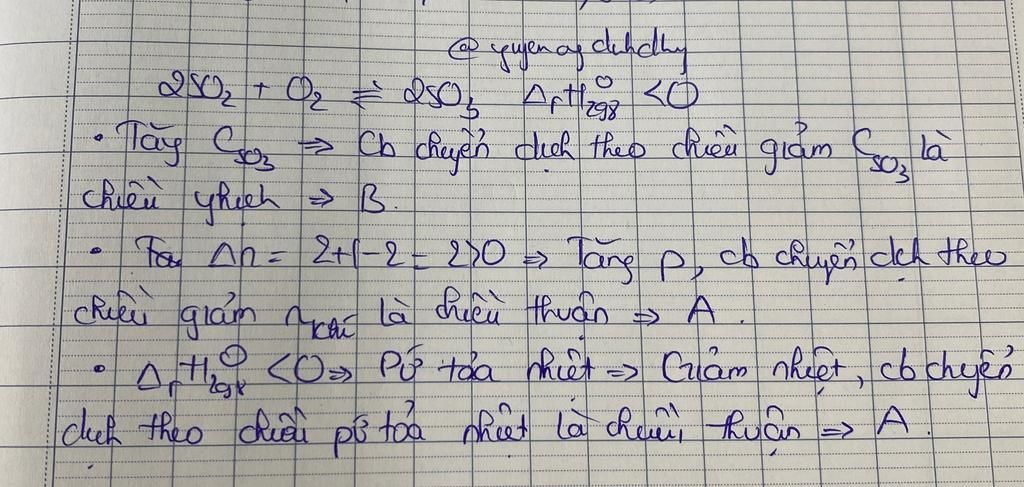 2SO₂ + O₂ ⇌ 2SO₃ ΔᵣH⁰₂₉₈ <0
• Tăng C_SO₃ ⇒ Cb chuyển dịch theo chiều giảm C_SO₃ là
chiều nghịch ⇒ B.
• Δn = 2+1-2 = 2>0 ⇒ Tăng p, cb chuyển dịch theo
chiều giảm n_khí là chiều thuận ⇒ A.
• ΔᵣH⁰₂₉₈ <0 ⇒ Pứ tỏa nhiệt ⇒ Giảm nhiệt, cb chuyển
dịch theo chiều pứ toả nhiệt là chiều thuận ⇒ A.